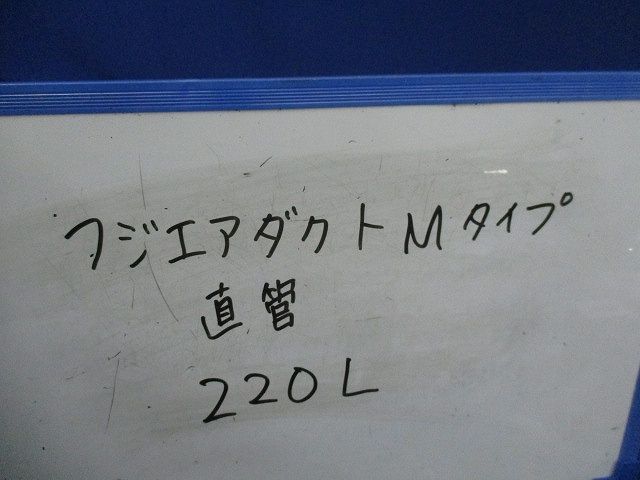 フジエアダクトMタイプ
直管
220L